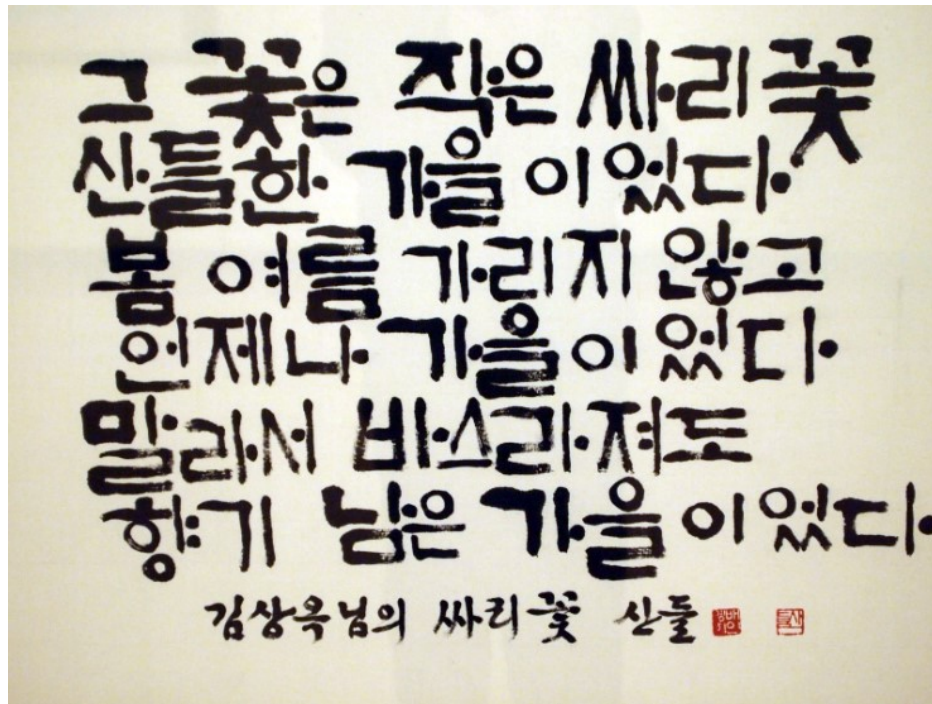 그 꽃은 작은 싸리꽃
산들한 가을이었다
봄 여름 가리지 않고
언제나 가을이었다
말라서 바스라져도
향기 남은 가을이었다
김상옥님의 싸리꽃 산들